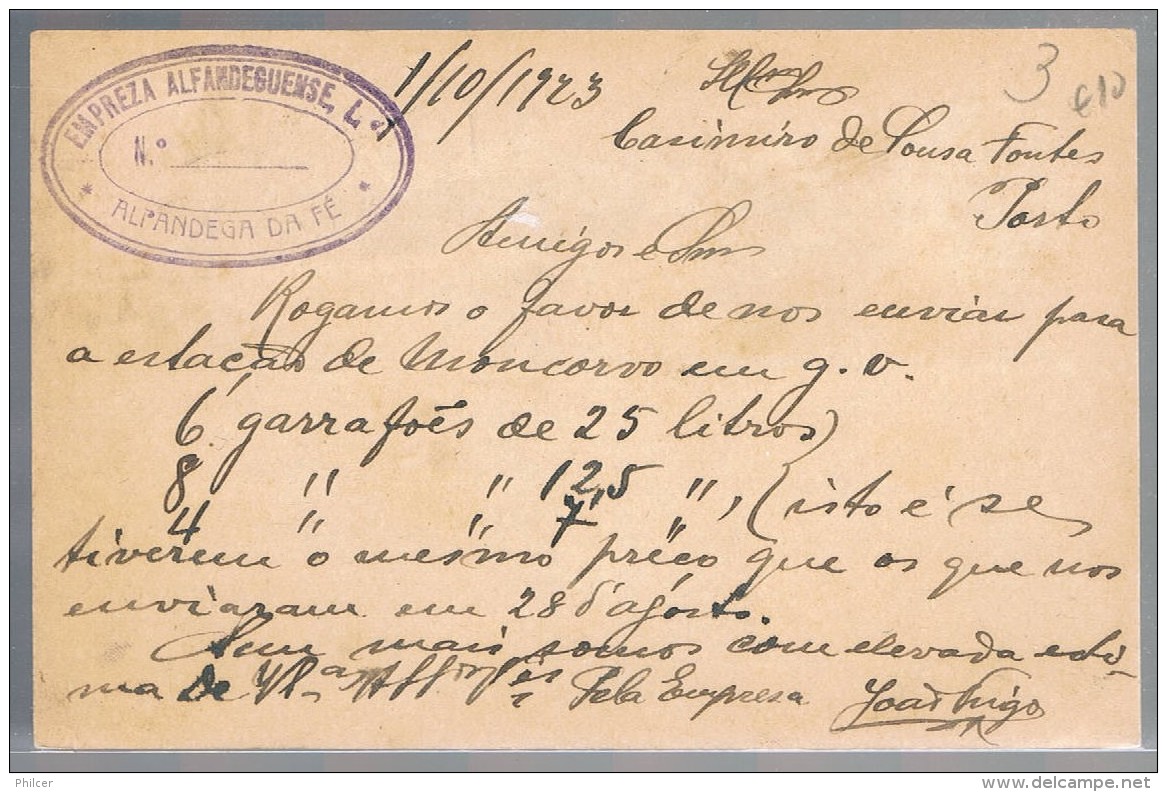 EMPREZA ALFANDEGUENSE, L.da
N.º
* ALFANDEGA DA FÉ *
1/10/1923
3
€10
Casimiro de Sousa Fontes
Porto
Amigos e Snrs
Rogamos o favor de nos enviar para
a estação de Moncorvo em g. v.
6 garrafões de 25 litros)
8 " " 12,5 ", (isto é se
4 " " 7 "
tiverem o mesmo préço que os que nos
enviaram em 28 d'agosto.
Sem mais somos com elevada esti-
ma de Pela Empresa João
Philcer
www.delcampe.net